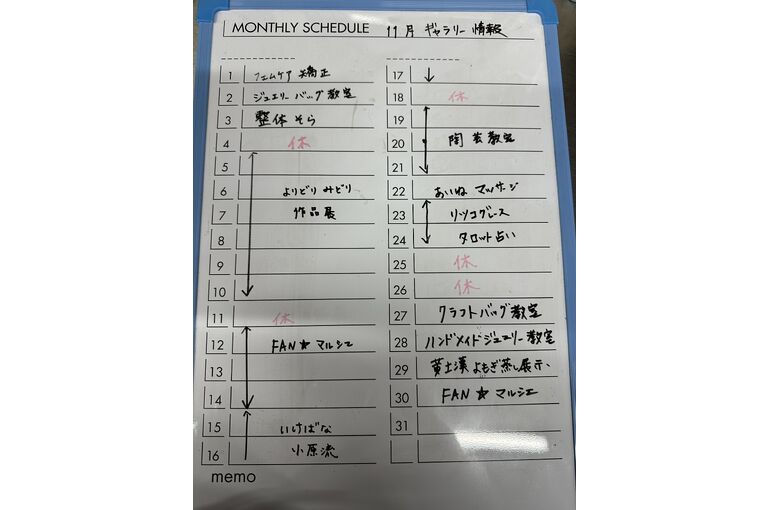 MONTHLY SCHEDULE 11月 ギャラリー情報
1 フェムケア 矯正
2 ジュエリーバッグ教室
3 整体 そら
4 休
5
6 よりどりみどり
7 作品展
8
9
10
11 休
12 FAN★マルシェ
13
14
15 いけばな
16 小原流
memo
17
18 休
19
20 陶芸教室
21
22 あいね マッサージ
23 リツコグレース
24 タロット占い
25 休
26 休
27 クラフトバッグ教室
28 ハンドメイドジュエリー教室
29 黄土漢よもぎ蒸し展示、
30 FAN★マルシェ
31